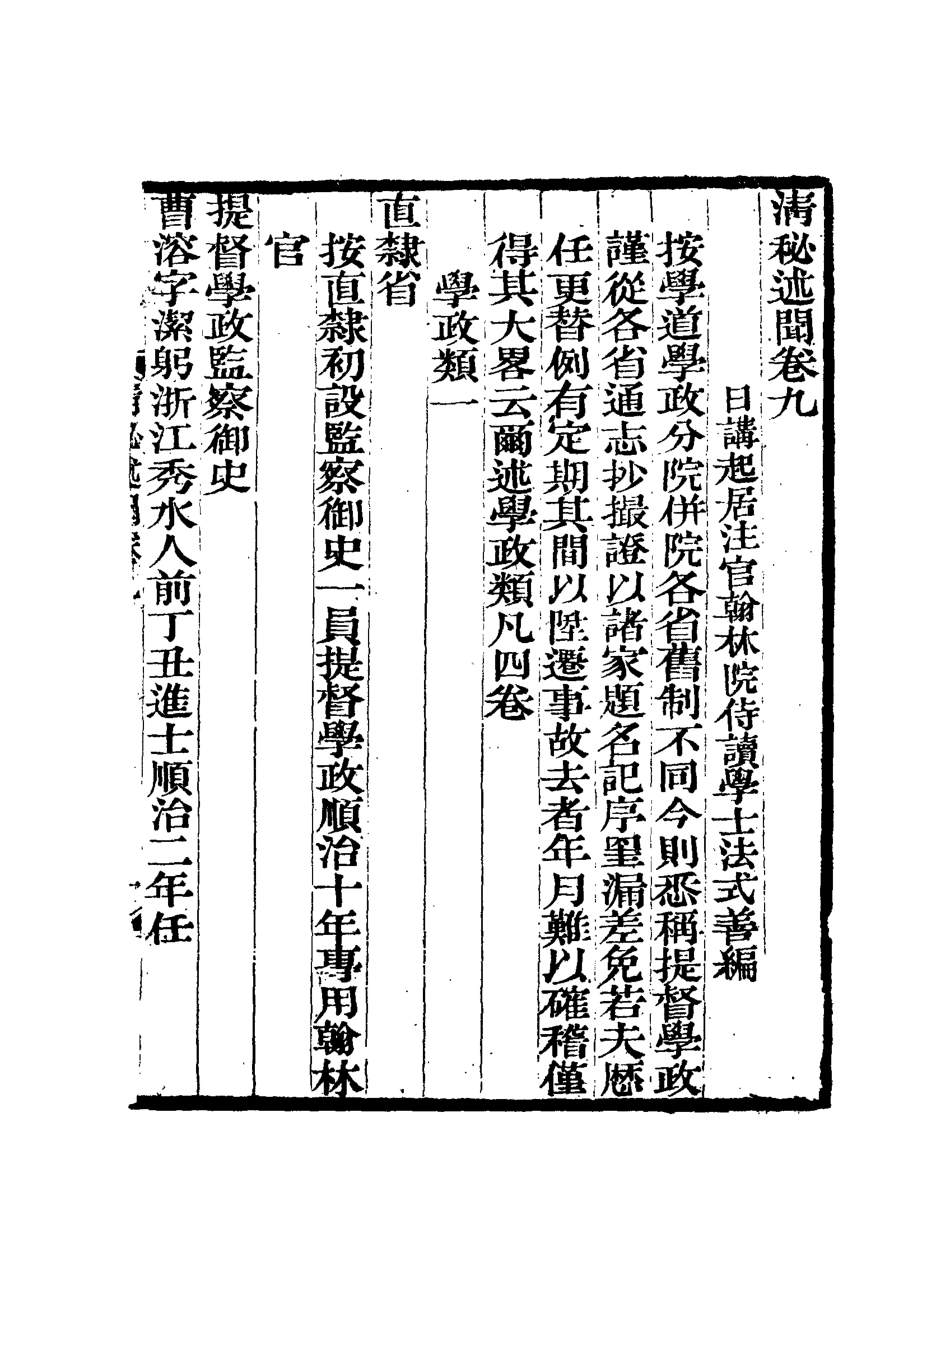 清秘述聞卷九
日講起居注官翰林院侍讀學士法式善編
按學道學政分院併院各省舊制不同今則悉稱提督學政
謹從各省通志抄撮證以諸家題名記序罣漏差免若夫歷
任更替例有定期其間以陞遷事故去者年月難以確稽僅
得其大畧云爾述學政類凡四卷
學政類一
直隸省
按直隸初設監察御史一員提督學政順治十年專用翰林
官
提督學政監察御史
曹溶字潔躬浙江秀水人前丁丑進士順治二年任